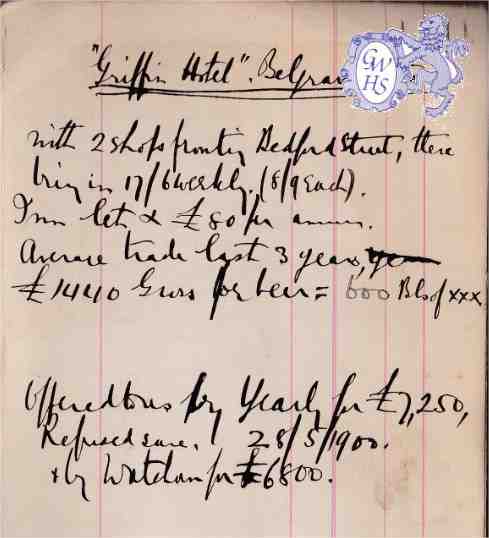 "Griffin Hotel". Belgrav
GWHS
with 2 shops fronting Bedford Street, these
bring in 17/6 weekly. (8/9 each).
Inn lets @ £80 per annum.
Average trade last 3 years,
£1440 Gross for beer = 600 Bls of xxx.
Offered to us by Yearly for £7,250,
Refused same. 28/5/1900.
& by for £6800.